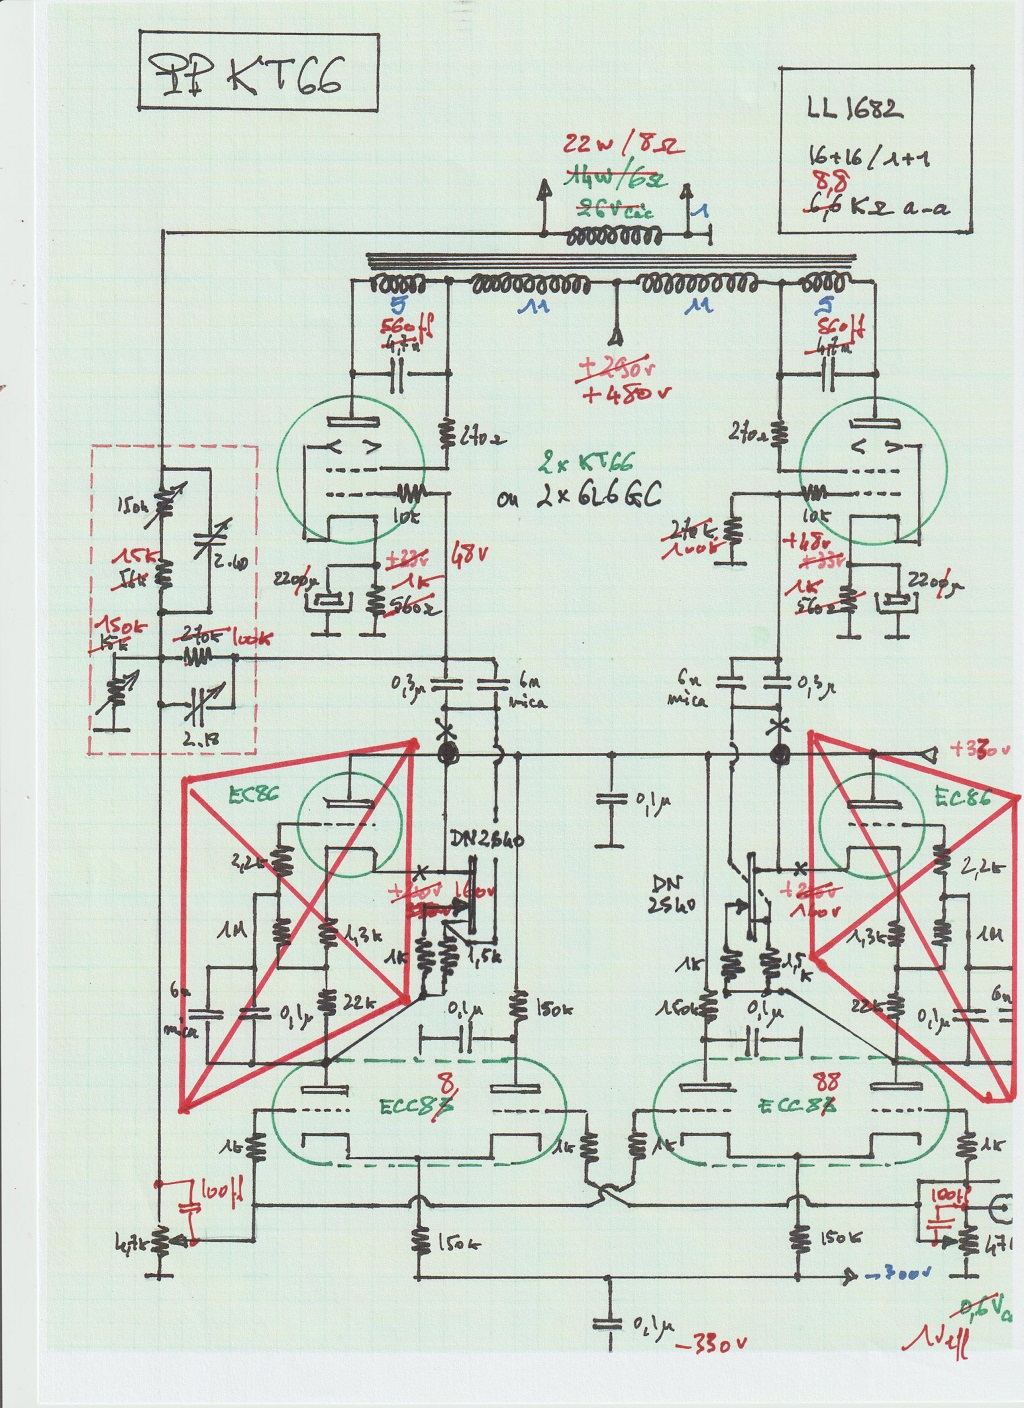 PP KT66
LL 1682
16+16/1+1
8,8
6,6 KΩ a-a
22W/8Ω
14W/6Ω
26Vcàc
1
5
11
11
5
560pf
4,7n
560pf
4,7n
+290v
+480v
270Ω
270Ω
2x KT66
ou 2x 6L6GC
10k
10k
150k
2.40
15k
56k
270k
100k
+33v
48v
1k
2200µ
560Ω
+48v
+33v
1k
560Ω
2200µ
150k
15k
270k
100k
2.18
0,3µ
6n
mica
6n
mica
0,3µ
+330v
EC86
0,1µ
EC86
2,2k
DN2540
DN
2540
2,2k
160v
160v
1M
1,3k
1k
1,5k
1k
1,5k
1,3k
1M
6n
mica
0,1µ
22k
0,1µ
150k
150k
0,1µ
22k
0,1µ
6n
8
ECC83
88
ECC83
1k
1k
1k
1k
100pf
100pf
4,7k
150k
150k
47
-300v
0,1µ
-330v
0,6V
1Veff